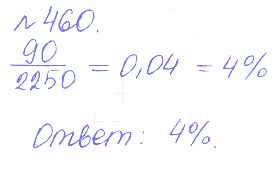 №460.
90
2250 = 0,04 = 4%
Ответ: 4%.